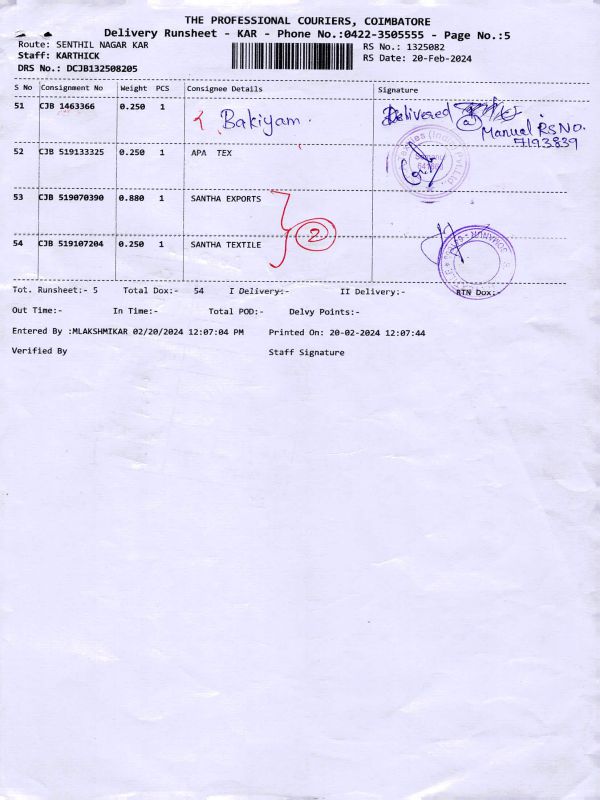 THE PROFESSIONAL COURIERS, COIMBATORE
Delivery Runsheet - KAR - Phone No.:0422-3505555 - Page No.:5
Route: SENTHIL NAGAR KAR RS No.: 1325082
Staff: KARTHICK RS Date: 20-Feb-2024
DRS No.: DCJB132508205
S No Consignment No Weight PCS Consignee Details Signature
51 CJB 1463366 0.250 1 Bakiyam. Delivered
Manual RS No.
7193839
52 CJB 519133325 0.250 1 APA TEX
53 CJB 519070390 0.880 1 SANTHA EXPORTS
2
54 CJB 519107204 0.250 1 SANTHA TEXTILE
Tot. Runsheet:- 5 Total Dox:- 54 I Delivery:- II Delivery:- RTN Dox:-
Out Time:- In Time:- Total POD:- Delvy Points:-
Entered By :MLAKSHMIKAR 02/20/2024 12:07:04 PM Printed On: 20-02-2024 12:07:44
Verified By Staff Signature